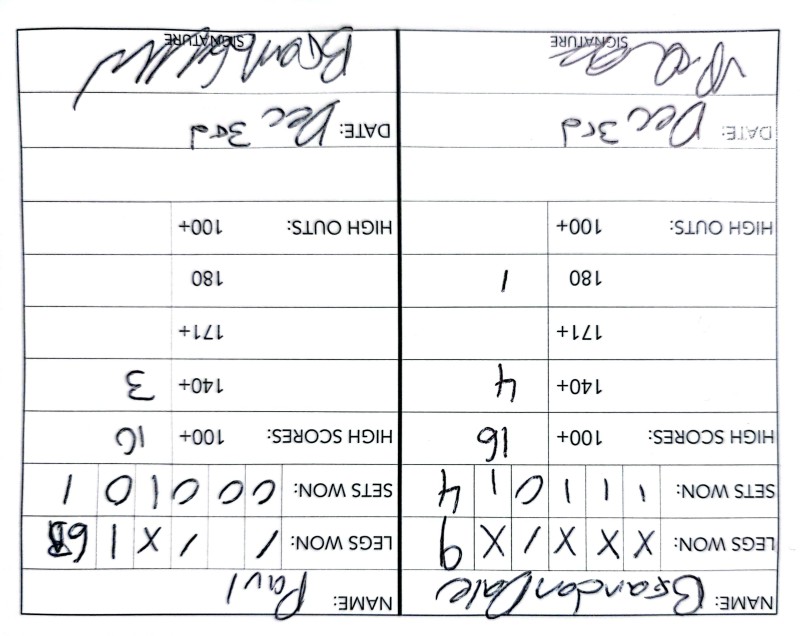 NAME: Brandon Dale
LEGS WON: X X X / X 9
SETS WON: 1 1 1 0 1 4
HIGH SCORES: 100+ 16
140+ 4
171+
180 1
HIGH OUTS: 100+
DATE: Dec 3rd
SIGNATURE
NAME: Paul
LEGS WON: / / X 1
SETS WON: 0 0 0 1 0 1
HIGH SCORES: 100+ 10
140+ 3
171+
180
HIGH OUTS: 100+
DATE: Dec 3rd
SIGNATURE